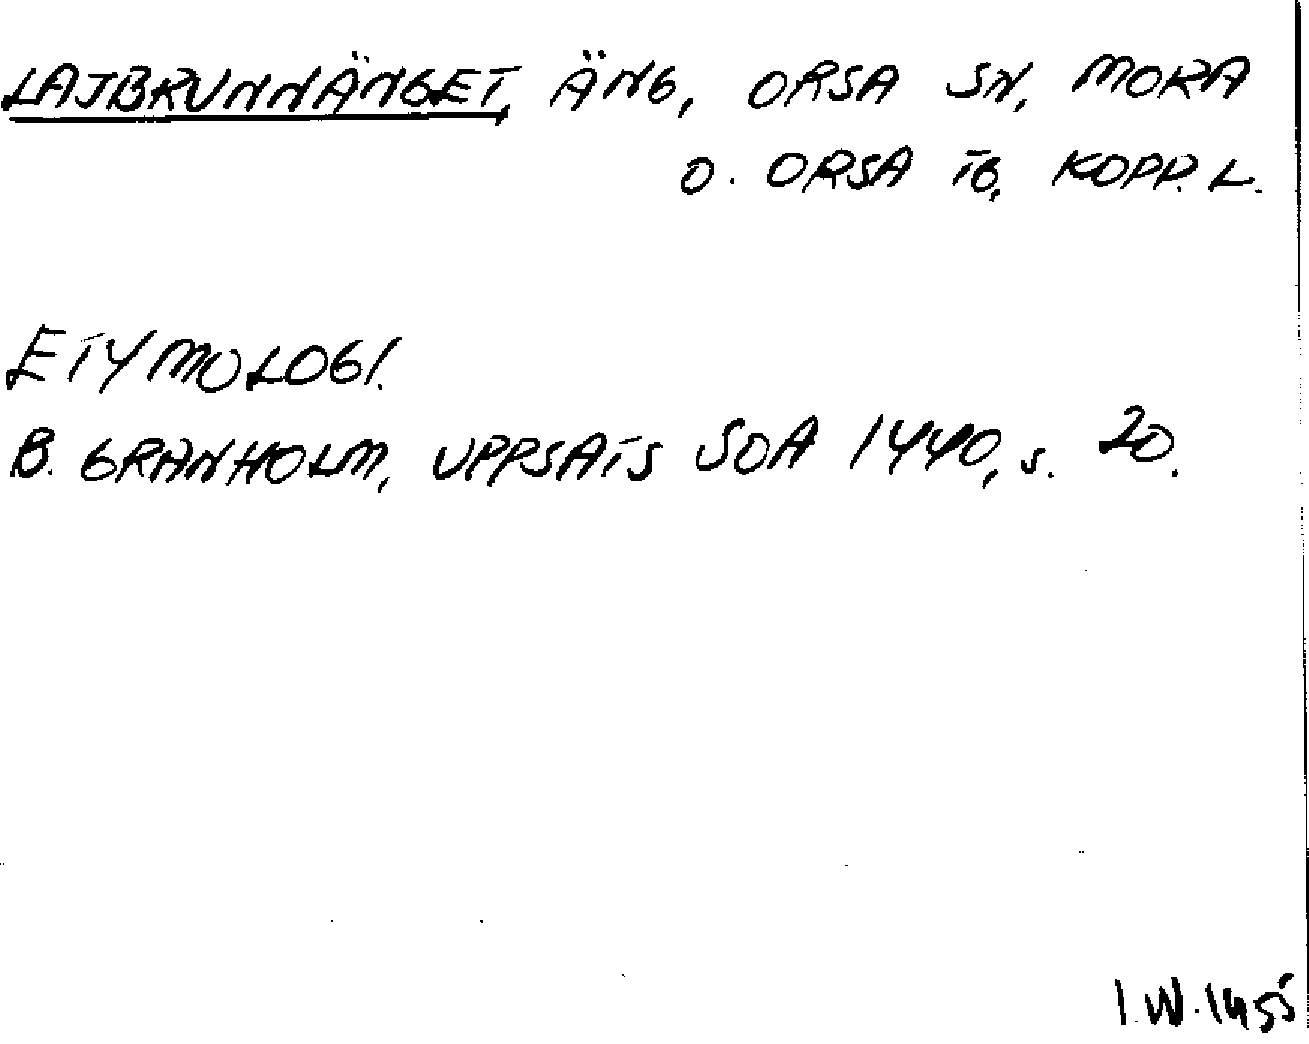 LAJBRUNNÄNGET, ÄNG, ORSA SN, MORA
O. ORSA TG, KOPP. L.
ETYMOLOGI.
B. GRANHOLM, UPPSATS SOA 1940, s. 20.
I.W. 1955